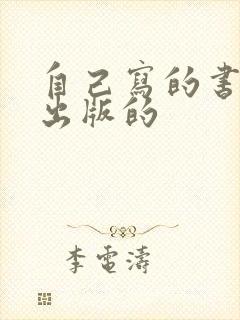 自己寫的書
出版的
李電濤